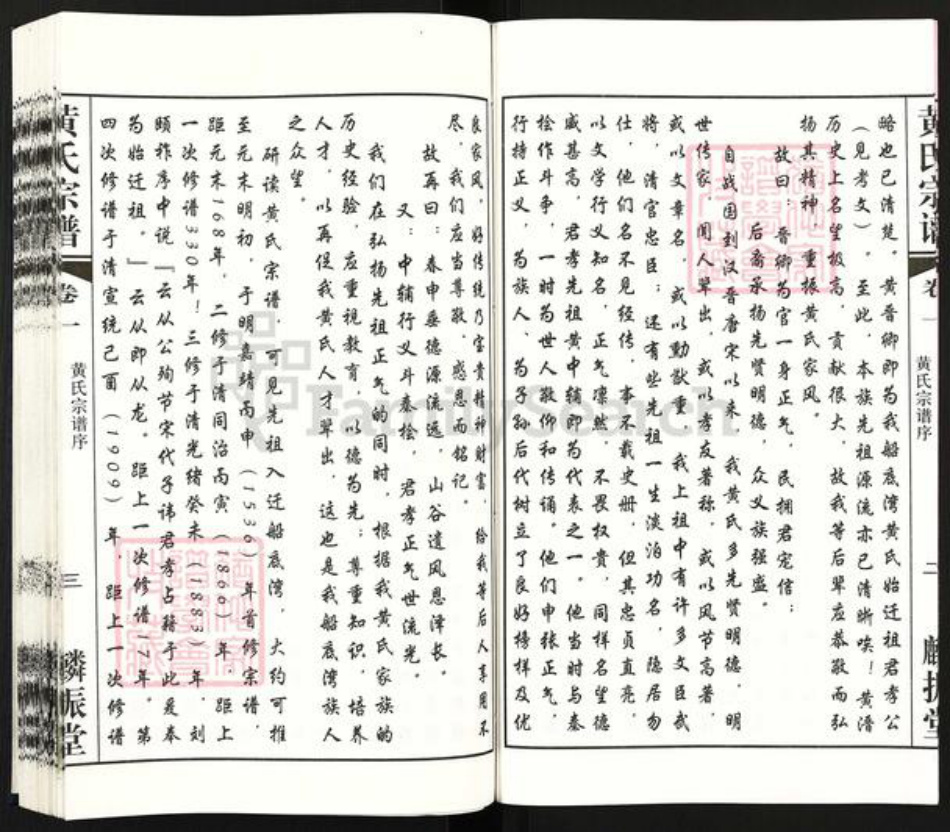 黄氏宗谱
卷一
黄氏宗谱序
二
麟振堂
略也已清楚。黄晋卿即为我船底湾黄氏始迁祖君孝公
（见考文）。至此，本族先祖源流亦已清晰唉！黄清
历史上名望极高，贡献很大，故我等后辈应恭敬而弘
扬其精神，重振黄氏家风。
故曰：晋卿为官一身正气，民拥君宠信；
后裔承扬先贤明德，众义族强盛。
自战国到汉晋唐宋以来，我黄氏多先贤明德，明
世传家，闻人辈出，或以孝友著称，或以风节高著，
或以文章名，或以勳猷重，我上祖中有许多文臣武
将，清官忠臣；还有些先祖一生淡泊功名，隐居勿
仕，他们名不见经传，事不载史册，但其忠贞直亮，
以文学行义知名，正气凛然，不畏权贵，同样名望德
威甚高，君孝先祖黄中辅即为代表之一。他当时与秦
桧作斗争，一时为世人敬仰和传诵。他们申张正气，
行持正义，为族人、为子孙后代树立了良好榜样及优
良家风，好传统乃宝贵精神财富，给我等后人享用不
尽，我们应当尊敬，感恩而铭记。
故再曰：春申垂德源流远，山谷遗风恩泽长。
又：中辅行义斗秦桧，君孝正气世流光。
我们在弘扬先祖正气的同时，根据我黄氏家族的
历史经验，应重视教育，以德为先；尊重知识，培养
人才，以再促我黄氏人才辈出，这也是我船底湾族人
之众望。
研读黄氏宗谱，可见先祖入迁船底湾，大约可推
至元末明初，于明嘉靖丙申（1536）年首修宗谱，
距元末168年，二修于清同治丙寅（1866）年，距上
一次修谱330年！三修于清光绪癸未（1883）年，刘
颐祚序中说『云从公殉节宋代子讳君孝占籍于此爰奉
为始迁祖。』云从即从龙。距上一次修谱17年。第
四次修谱于清宣统己酉（1909）年，距上一次修谱
黄氏宗谱
卷一
黄氏宗谱序
三
麟振堂
FamilySearch